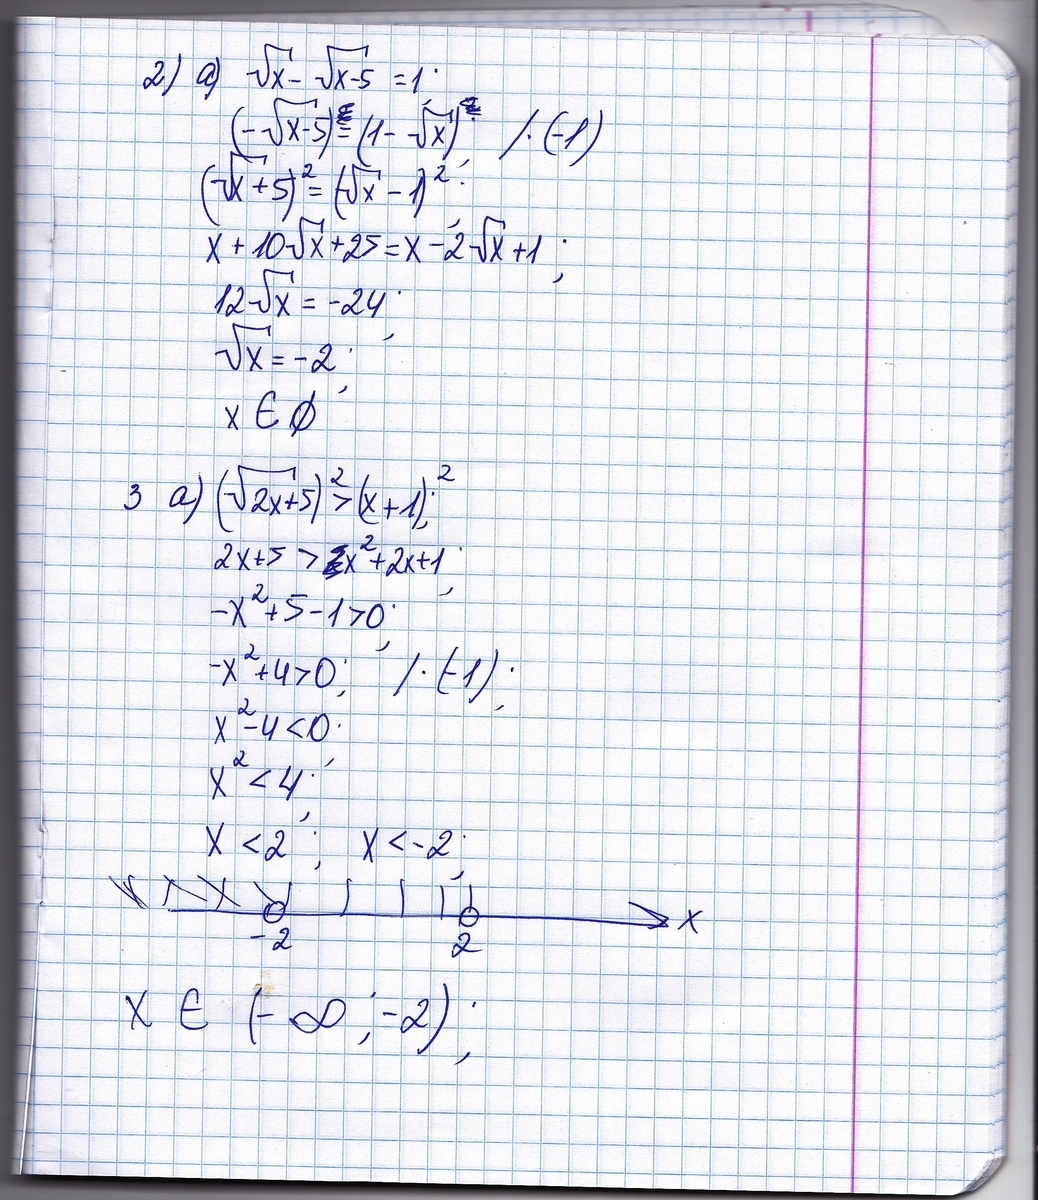 2) а) √x - √x-5 = 1;
(-√x-5) = (1 - √x) /·(-1)
(√x+5)² = (√x - 1)²;
x + 10√x + 25 = x - 2√x + 1;
12√x = -24;
√x = -2;
x ∈ ∅
3 а) (√2x+5)² > (x+1)²;
2x+5 > x²+2x+1;
-x²+5-1>0;
-x²+4>0; /·(-1);
x²-4<0;
x² < 4;
x < 2; x < -2;
x
-2 2
x ∈ (-∞; -2);